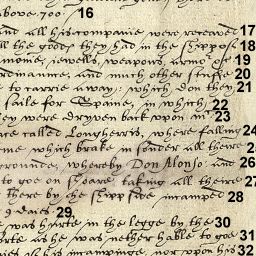 above 700 16
and all his companie were receaved 17
all the goods they had in the shipps of 18
monie, jewells, weapons, armo of 19
ordenaunce, and much other stuffe 20
to carrie away: which don they 21
saile for Spaine, in which 22
they were dryven back upon in 23
place called Lougherris, where falling 24
which brake in sonder all theire 25
grounde, wherebye Don Alonso: and 26
to goe on shoare taking all theire 27
there by the shipp side incamped 28
9 daies 29
was hurte in the legge by the 30
sorte as he was nether hable to goe 31
his incampinge, nor uppon his 32